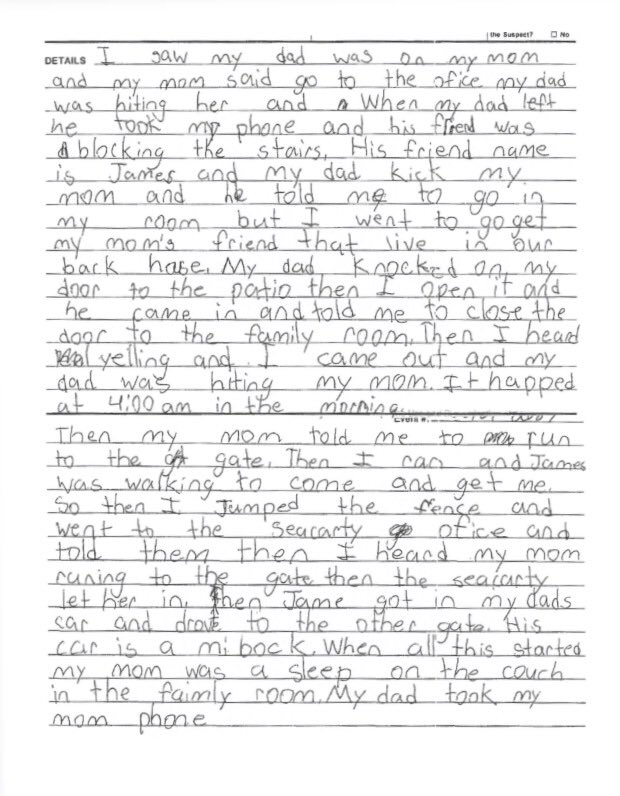 the Suspect? ☐ No
DETAILS I saw my dad was on my mom
and my mom said go to the ofice my dad
was hiting her and When my dad left
he took my phone and his friend was
blocking the stairs. His friend name
is James and my dad kick my
mom and he told me to go in
my room but I went to go get
my mom's friend that live in our
back hase. My dad knocked on my
door to the patio then I open it and
he came in and told me to close the
door to the family room. Then I heard
yelling and I came out and my
dad was hiting my mom. It happed
at 4:00 am in the morning.
Then my mom told me to run
to the gate. Then I ran and James
was walking to come and get me.
So then I Jumped the fence and
went to the seacarty ofice and
told them then I heard my mom
runing to the gate then the seacarty
let her in, then Jame got in my dads
car and drove to the other gate. His
car is a mi bock. When all this started
my mom was a sleep on the couch
in the faimly room. My dad took my
mom phone